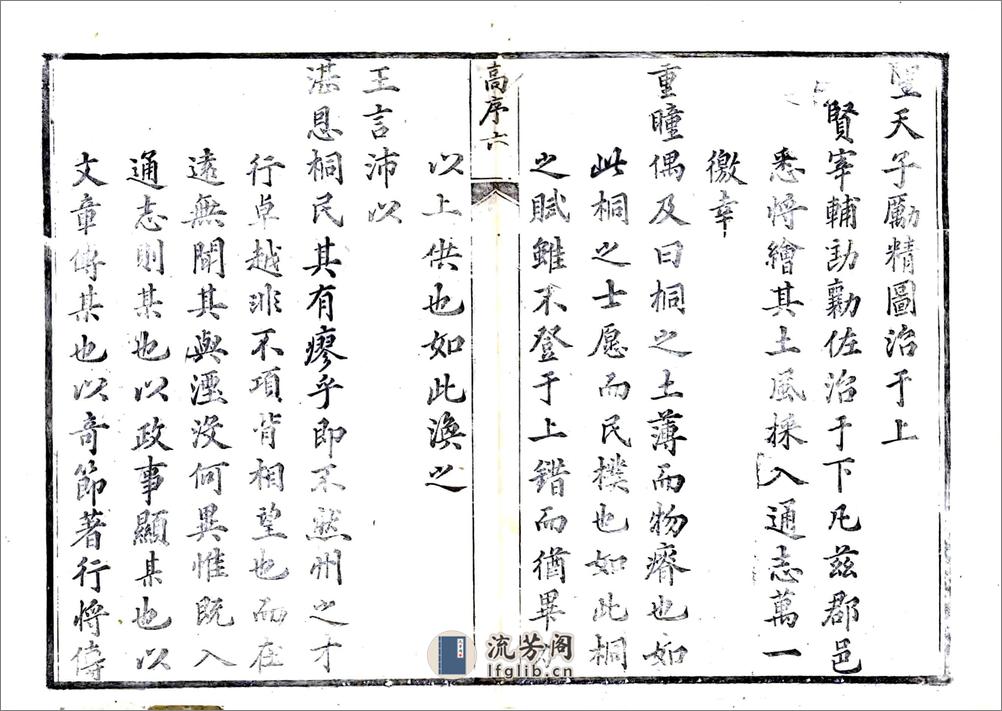 聖天子勵精圖治于上
賢宰輔劼勷佐治于下凡茲郡邑
悉將繪其土風採入通志萬一
徼幸
重瞳偶及曰桐之土薄而物瘠也如
此桐之士愿而民樸也如此桐
之賦雖不登于上錯而猶畢
高序六
以上供也如此渙之
王言沛以
湛恩桐民其有瘳乎即不然州之才
行卓越非不項背相望也而在
遠無聞其與湮沒何異惟既入
通志則某也以政事顯某也以
文章傳某也以奇節著行將傳
流芳阁
lfglib.cn